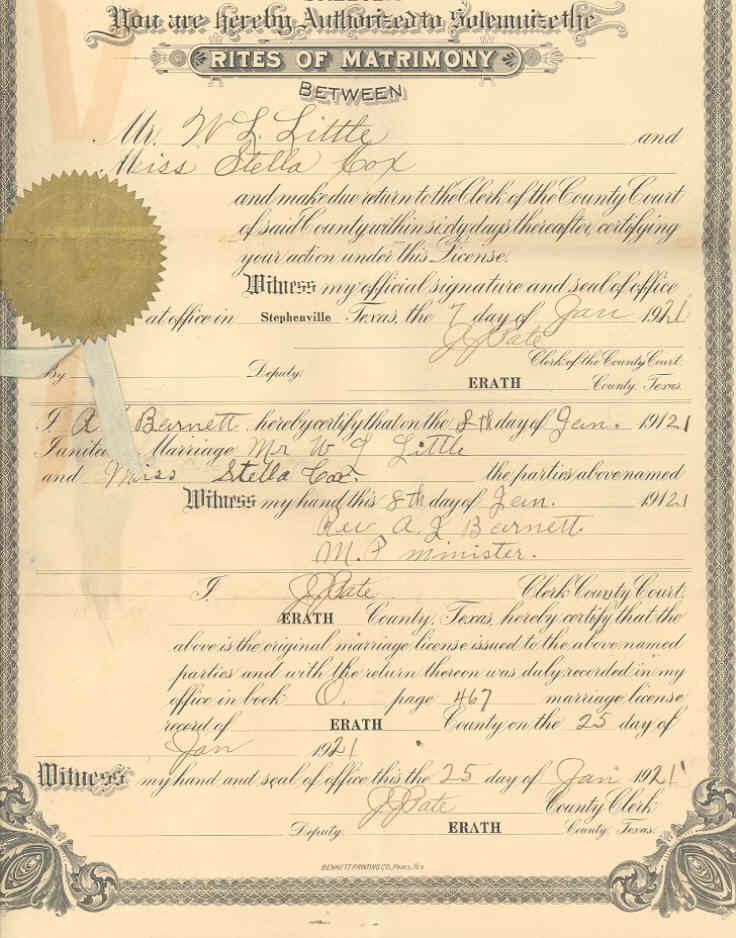 You are hereby Authorized to Solemnize the
RITES OF MATRIMONY
BETWEEN
Mr. W L Little and
Miss Stella Cox
and make due return to the Clerk of the County Court
of said County within sixty days thereafter, certifying
your action under this License.
Witness my official signature and seal of office
at office in Stephenville Texas, the 7 day of Jan 1921
J J Pate
Clerk of the County Court.
By Deputy. ERATH County, Texas.
I A Barnett hereby certify that on the 8th day of Jan. 19121
I united Marriage Mr W L Little
and Miss Stella Cox. the parties above named
Witness my hand this 8th day of Jan. 19121
Rev A. L Barnett
M. P minister.
I, J J Pate Clerk County Court,
ERATH County, Texas, hereby certify that the
above is the original marriage license issued to the above named
parties and with the return thereon was duly recorded in my
office in book O. page 467 marriage license
record of ERATH County on the 25 day of
Jan 1921
Witness my hand and seal of office this the 25 day of Jan 1921
J J Pate County Clerk
Deputy. ERATH County, Texas.
BENNETT PRINTING CO., PARIS, TEX